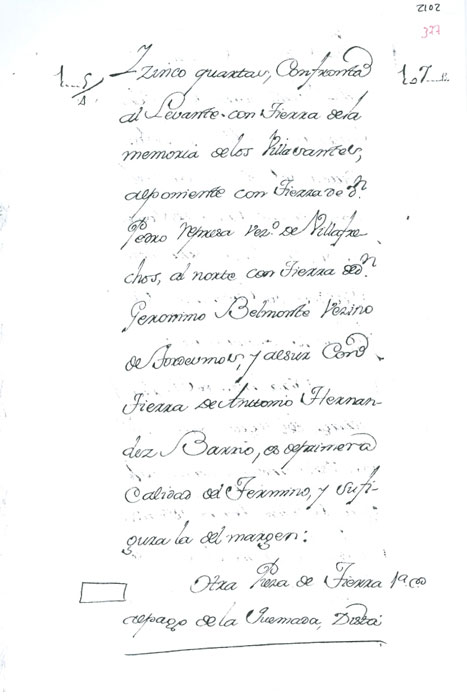 2102
327
Y zinco quartas, Confronta
al Levante con Tierra de la
memoria de los Villasantes,
al poniente con Tierra de Dn
Pedro Represa Vezo. de Villafre-
chos, al norte con Tierra de Dn
Geronimo Belmonte Vezino
de Tordeumos, y al sur Con
Tierra de Antonio Hernan-
dez Barrio, es de primera
Calidad del Termino, y su fi-
gura la del margen:
Otra Pieza de Tierra
al pago de la Quemada, Dista